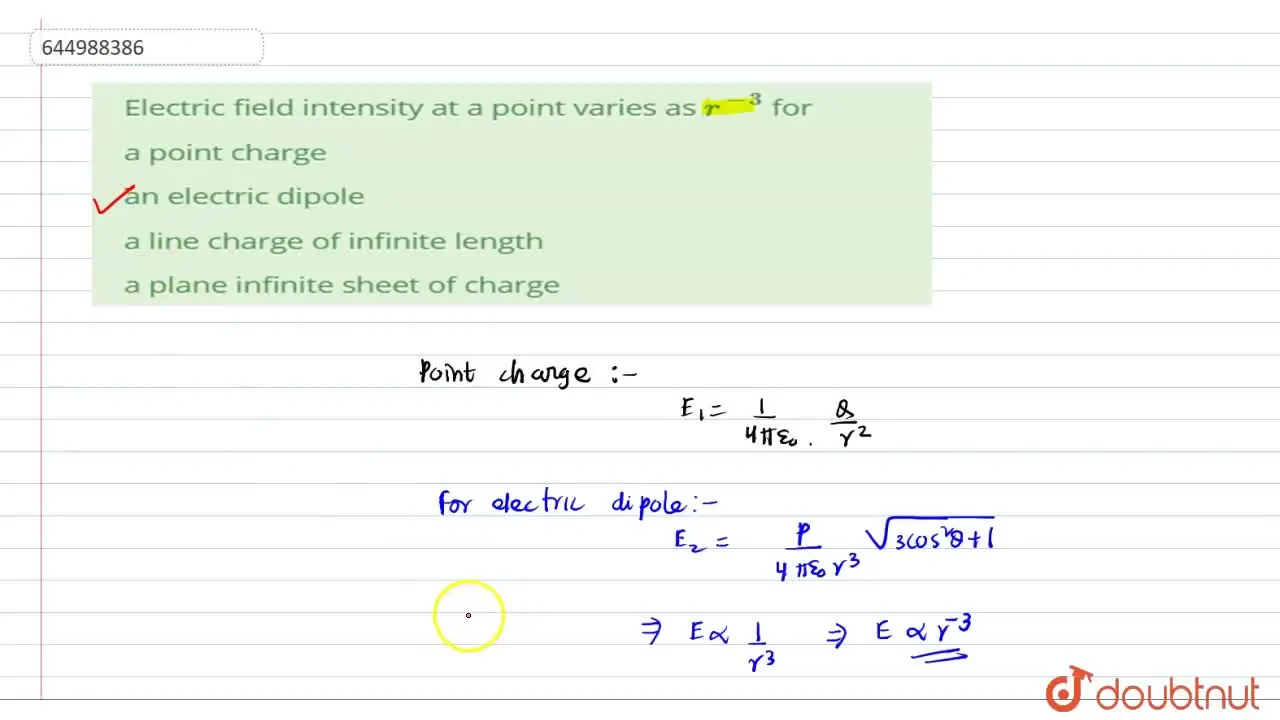 644988386
Electric field intensity at a point varies as r⁻³ for
a point charge
an electric dipole
a line charge of infinite length
a plane infinite sheet of charge
Point charge :-
E₁ = 1/4πε₀ . Q/r²
For electric dipole:-
E₂ = P/4πε₀r³ √(3cos²θ+1)
⇒ E ∝ 1/r³ ⇒ E ∝ r⁻³
doubtnut